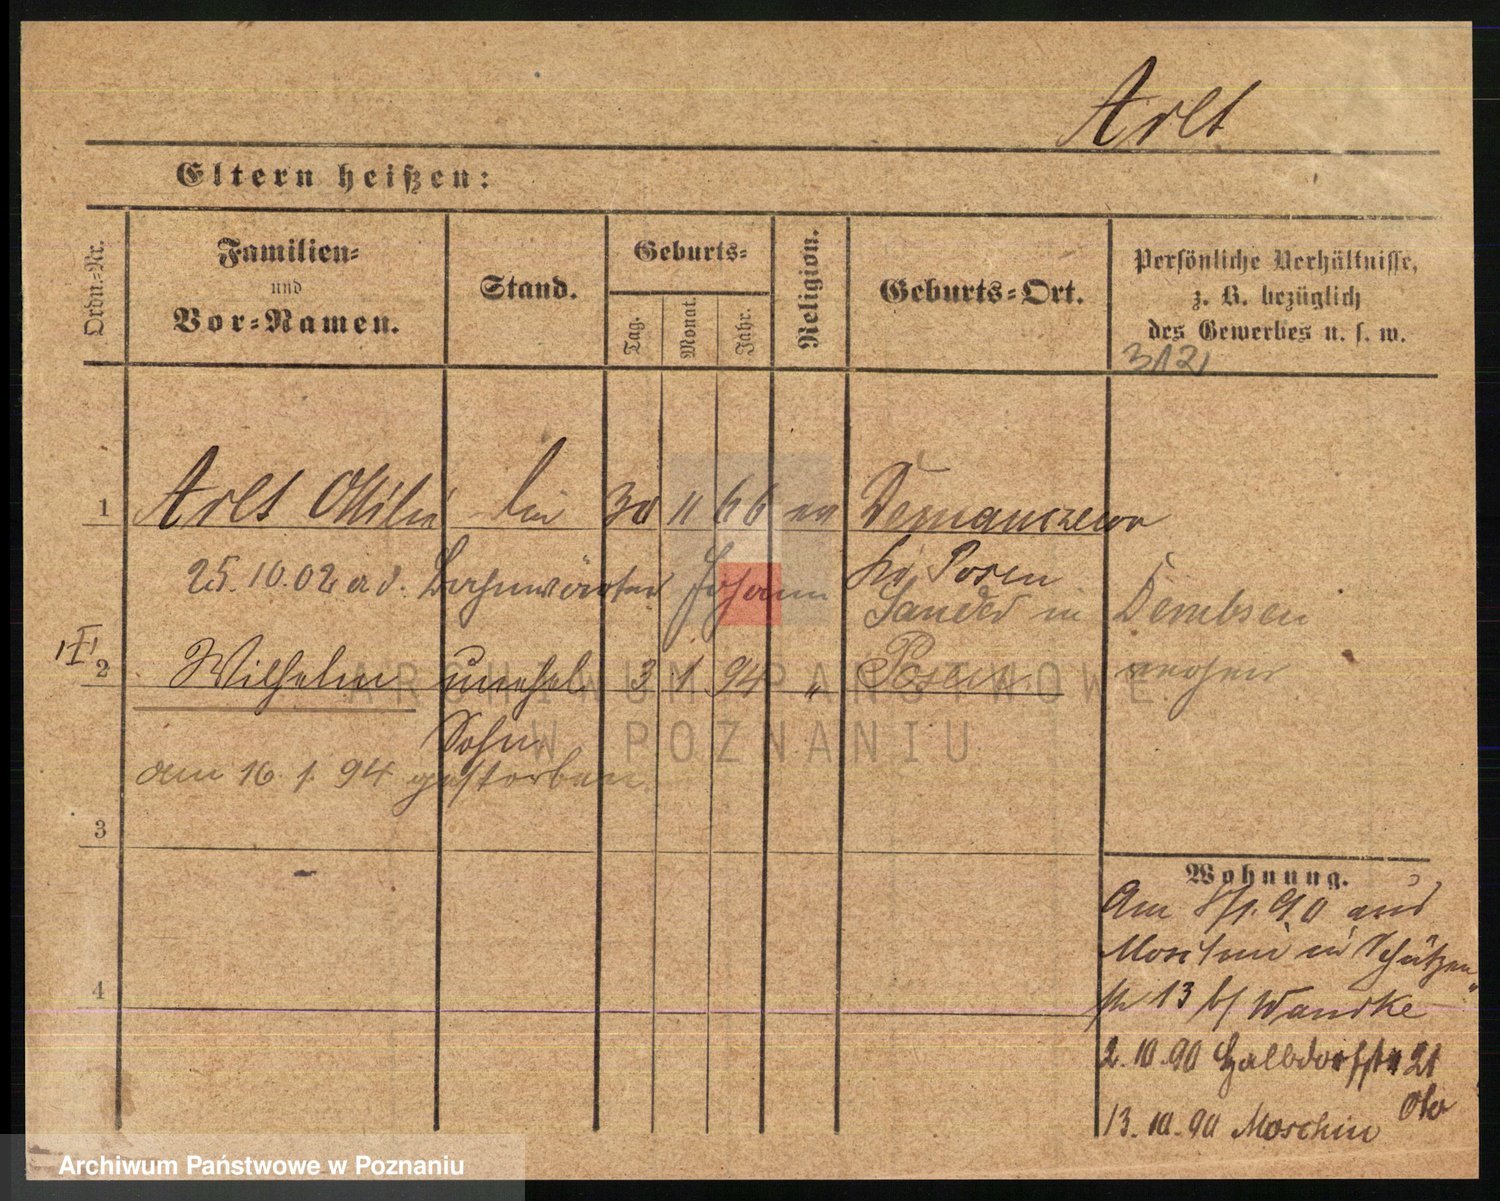 Arlt
Eltern heißen:
Ordn.-Nr.
Familien-
und
Vor-Namen.
Stand.
Geburts-
Tag.
Monat.
Jahr.
Religion.
Geburts-Ort.
Persönliche Verhältnisse,
z. B. bezüglich
des Gewerbes u. s. w.
1 Arlt Ottilie 30 11 66 ev
Kr. Posen
25.10.02 a d. Bahnwärter Johann Sander in Dembsen
"I" 2 Wilhelm unehel 3 1 94 " Posen
Sohn
am 16. 1. 94 gestorben.
3
Wohnung.
Am 90 aus
Moschin in Schützen
4
str 13 b/
2.10.90 Halbdorfstr 21
13.10.90 Moschin
ARCHIWUM PAŃSTWOWE
W POZNANIU
Archiwum Państwowe w Poznaniu